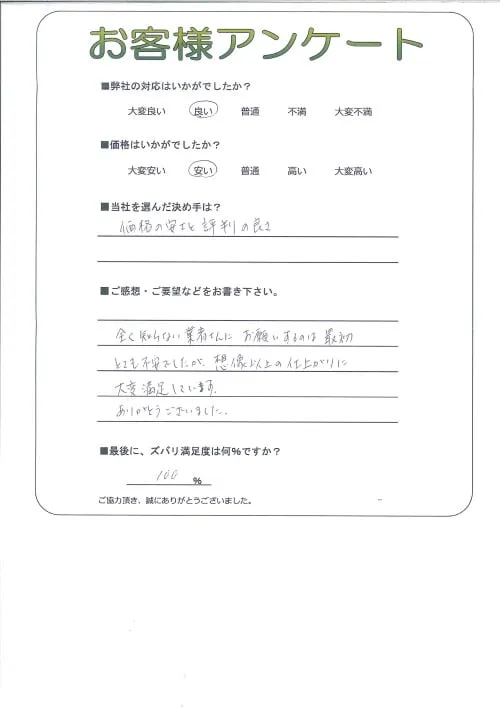 お客様アンケート
■弊社の対応はいかがでしたか？
大変良い 良い 普通 不満 大変不満
■価格はいかがでしたか？
大変安い 安い 普通 高い 大変高い
■当社を選んだ決め手は？
価格の安さと評判の良さ
■ご感想・ご要望などをお書き下さい。
全く知らない業者さんにお願いするのは最初
とても不安でしたが、想像以上の仕上がりに
大変満足しています。
ありがとうございました。
■最後に、ズバリ満足度は何％ですか？
100 ％
ご協力頂き、誠にありがとうございました。